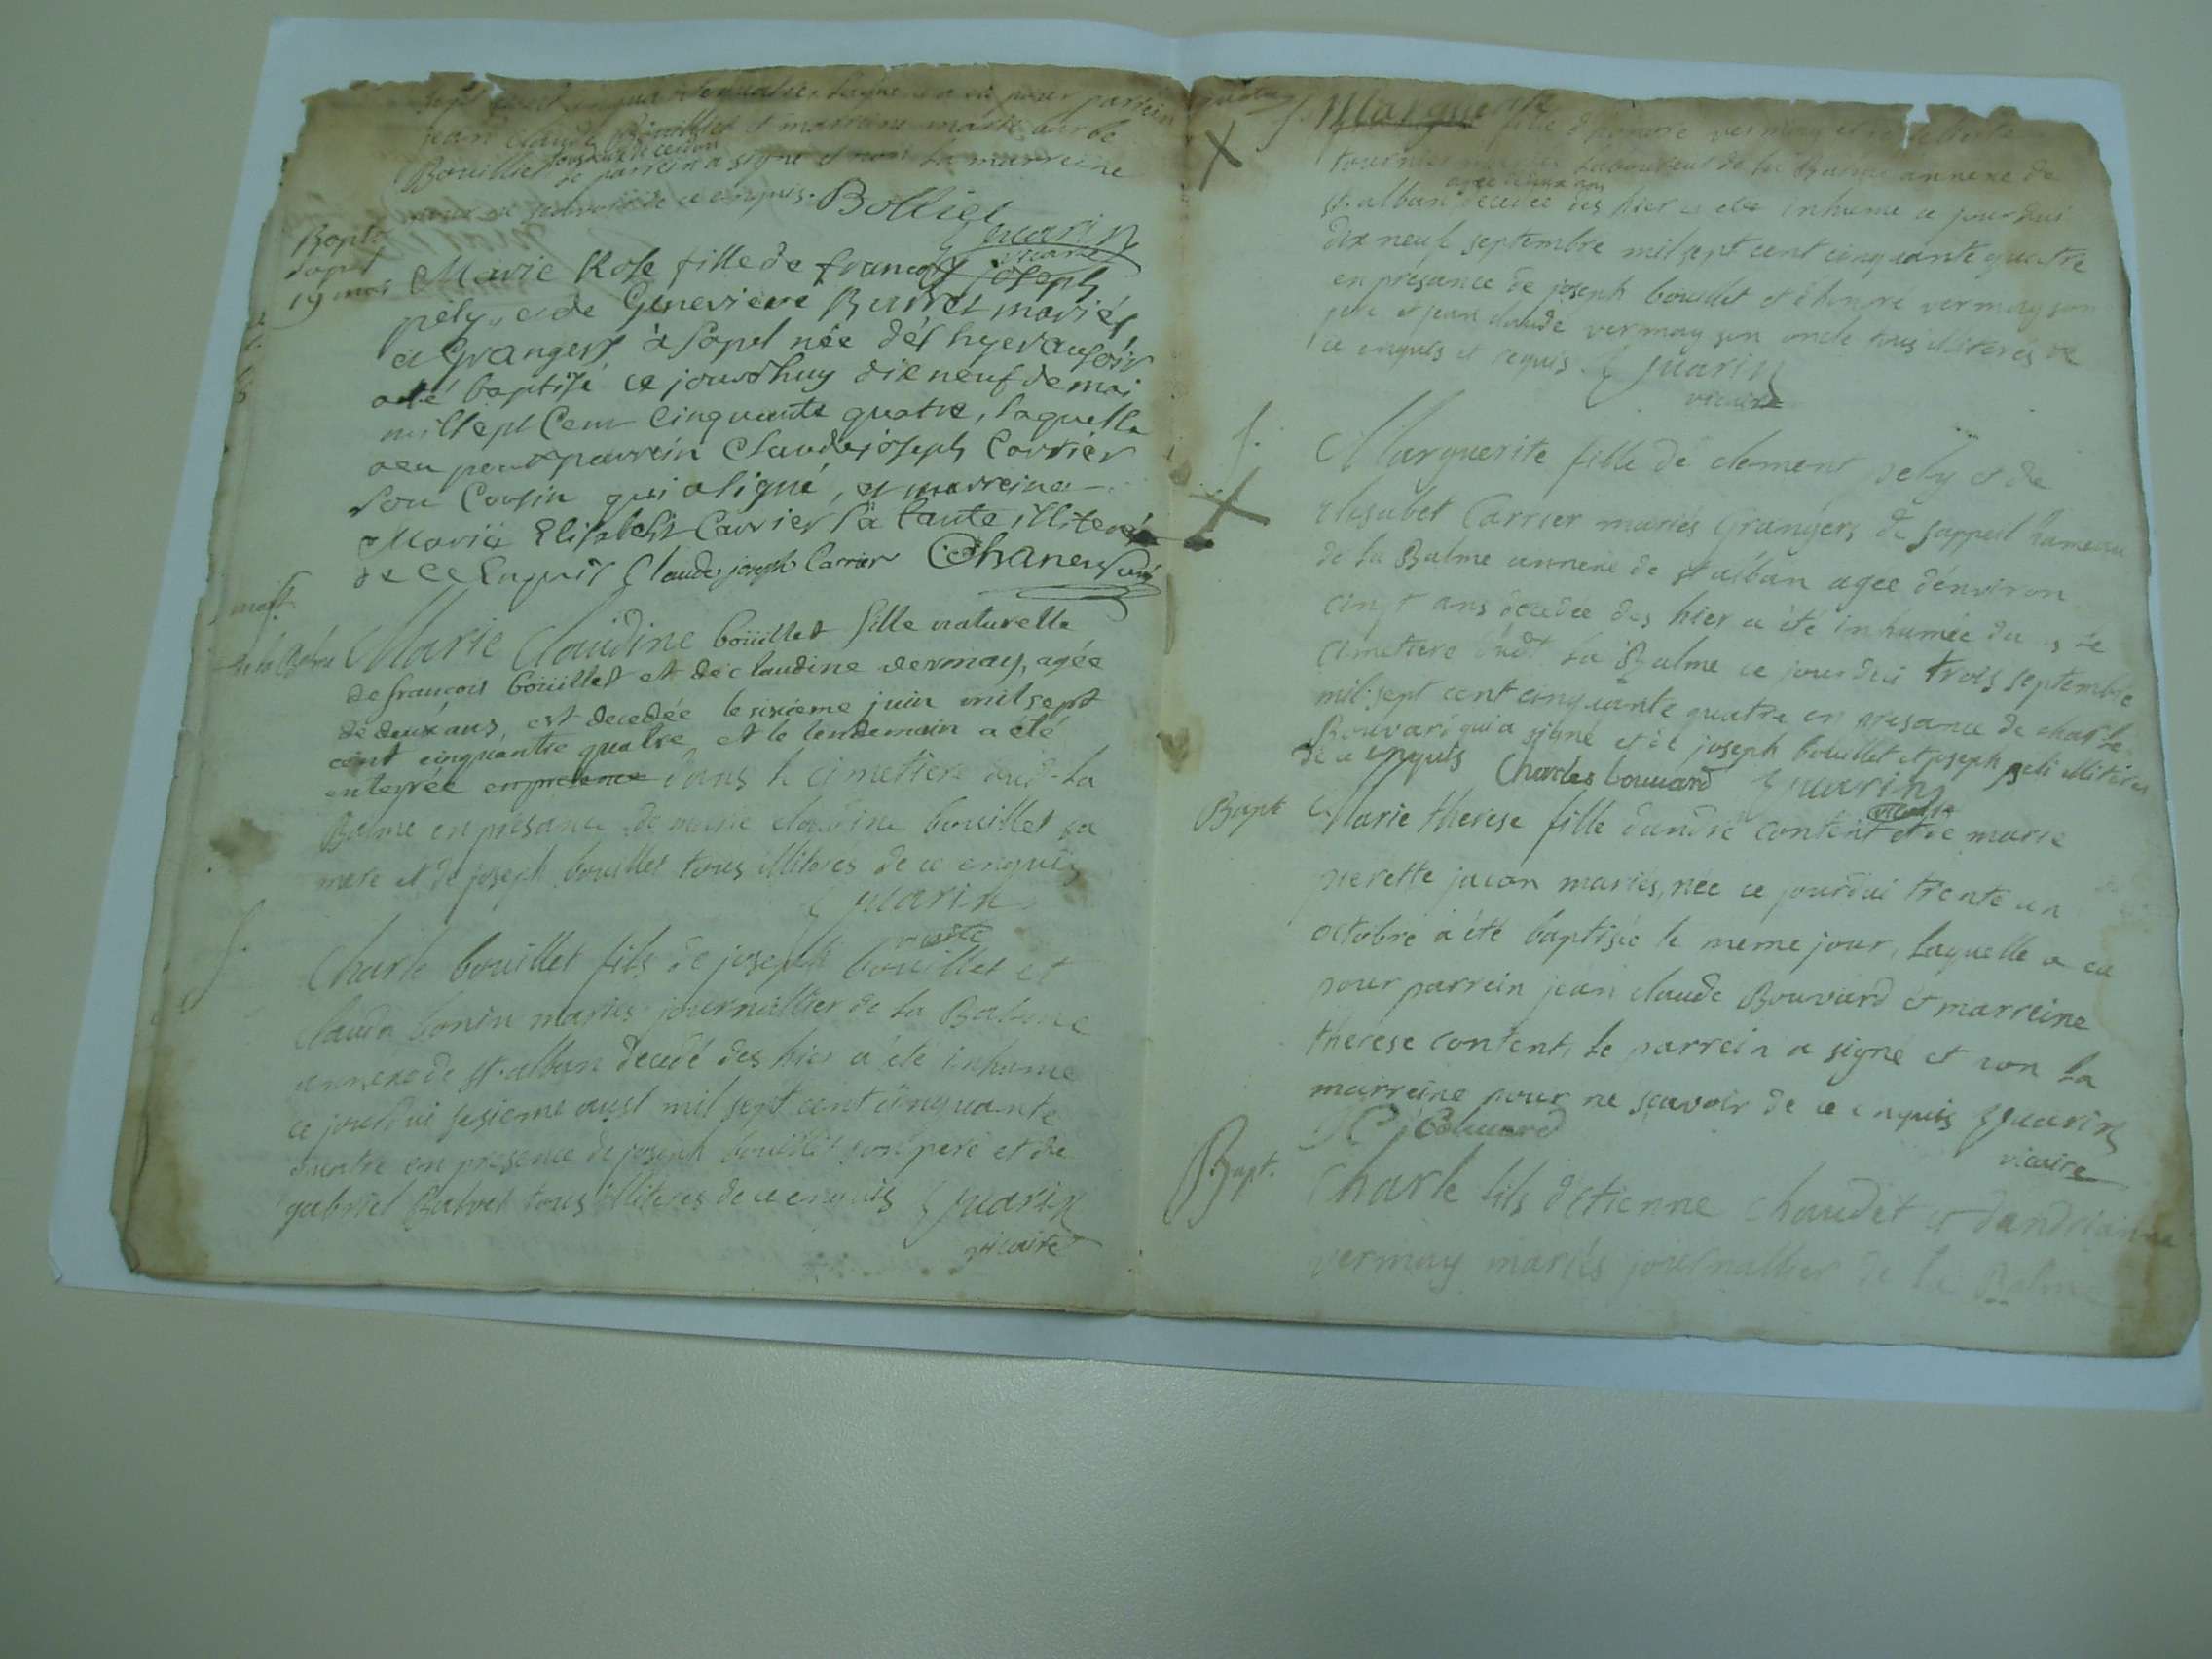 sept cent cinquante quatre laquelle a eu pour parrein
jean claude Bouillet et marreine marie
Bouillet tous deux de
le parrein a signé et non la marreine
pour ne scavoir de ce enquis. Bolliet
Guarin
vicaire
Bapt.
Sapel
19 mai
Marie Rose fille de francois joseph
pely, et de Genevieve Burret mariés
et Grangers à Sapel née dés hyer au soir
a été baptisé ce jourdhuy dix neuf de mai
mil sept Cent Cinquante quatre, laquelle
a eu pour parrein Claude joseph Carrier
Son Cousin qui a signé, et marreine
Marie Elisabeht Carrier sa tante illiterés
de ce Enquis Claude joseph Carrier Chaney curé
Marie Claudine boüillet fille naturelle
de françois boüillet et de claudine vermay, agée
de deux ans, est decedée le sixième juin mil sept
cent cinquantte quatre et le lendemain a été
enterrée en presence dans le cimettiere dud. La
Balme en présance de marie claudine bouillet sa
mere et de joseph bouillet tous illiteres de ce enquis
Guarin
vicaire
f.
Charle bouillet fils de joseph bouillet et
claudа bonin mariés journallier de la Balme
annexe de st. alban decedé des hier a été inhume
ce jourdui sesieme aust mil sept cent cinquante
quatre en presence de joseph bouillet son pere et de
gabriel Balvet tous illiteres de ce enquis Guarin
vicaire
f. Marguerite
X
fille d'honoré vermay et
laboureur de la Balme annexe de
agée de deux ans
st. alban decedée des hier a été inhume ce jourdui
dix neuf septembre mil sept cent cinquante quatre
en presance de joseph bouillet et d'honoré vermay son
pere et jean claude vermay son oncle tous illiterés de
ce enquis et requis. Guarin
vicaire
f.
X
Marguerite fille de clement pely et de
elisabet Carrier mariés Grangers de sappeil hameau
de la Balme annexe de st alban agée d'environ
cinq ans decedée des hier a été inhumée dans le
cimettiere dudt. La Balme ce jourdui trois septembre
mil sept cent cinquante quatre en presance de charle
Bouvard qui a signé et de joseph bouillet et joseph peli illiteres
de ce enquis Charles bouuard Guarin
vicaire
Bapt
Marie therese fille d'andré content et de marie
pierette jacon mariés, née ce jourdui trente un
octobre a été baptisée le meme jour, laquelle a eu
pour parrein jean claude Bouvard et marreine
therese content, le parrein a signé et non la
marreine pour ne scavoir de ce enquis Guarin
vicaire
J C Bouuard
Bapt.
Charle fils d'etienne chaudet et d'andrianne
vermay mariés journallier de la Balme